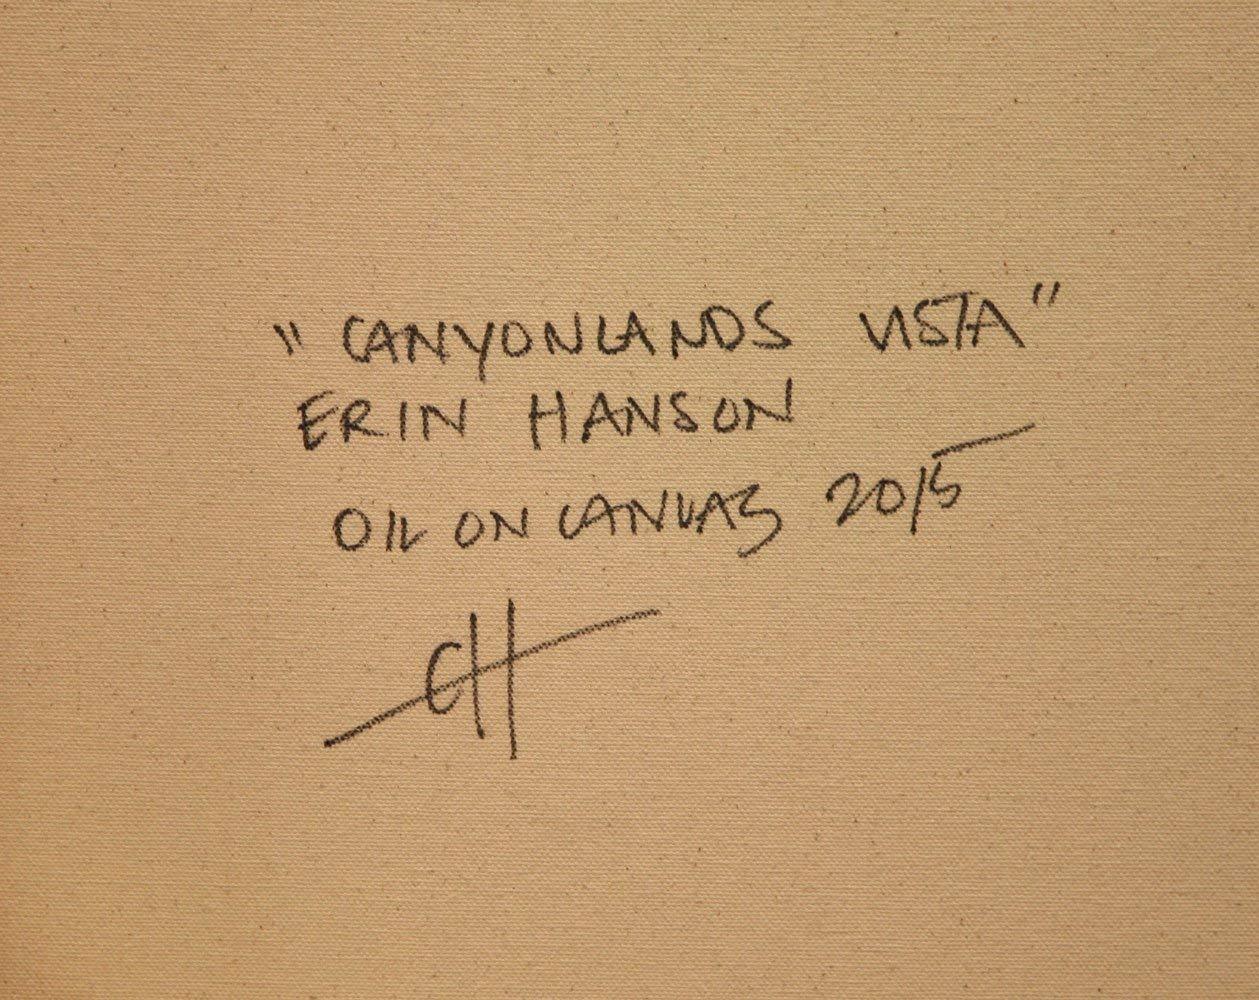 "CANYONLANDS VISTA"
ERIN HANSON
OIL ON CANVAS 2015
EH